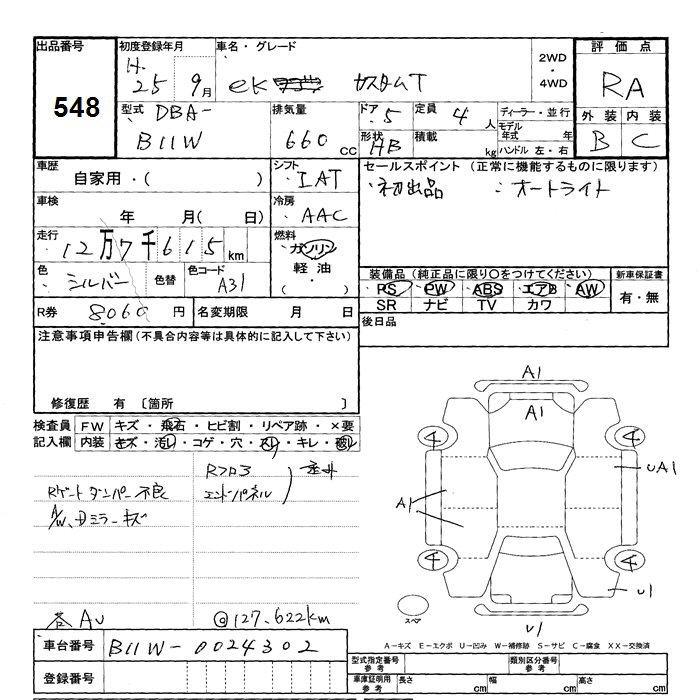 出品番号 初度登録年月 車名・グレード 2WD・4WD 評価点
548 H. 25年 9月 eK カスタムT RA
型式 DBA- 排気量 ドア 5 定員 4人 ディーラー・並行 外装 内装
B11W 660cc 形状 HB 積載 kg モデル年式 年 B C
ハンドル 左・右
車歴 シフト セールスポイント (正常に機能するものに限ります)
自家用・( ) IAT ・初出品 :オートライト
車検 冷房
年 月( 日) AAC
走行 燃料
12万7千615km ガソリン
色 シルバー 色替 色コード A31 軽油 装備品 (純正品に限り○をつけてください) 新車保証書
・( ) PS PW ABS エアB AW 有・無
SR ナビ TV カワ
R券 8060円 名変期限 月 日 後日品
注意事項申告欄 (不具合内容等は具体的に記入して下さい)
修復歴 有 〔箇所 〕
検査員 FW キズ・飛石・ヒビ割・リペア跡・×要
記入欄 内装 キズ・汚レ・コゲ・穴・スレ・キレ・破レ
Rゲートダンパー不良 Rフロア
A/W、Dミラーキズ エンドパネル
各AU @127,622km
A1
A1
4 4
UA1
A1
4 4
U1
スペア
U1
A-キズ E-エクボ U-凹み W-補修跡 S-サビ C-腐食 XX-交換済
車台番号 B11W-0024302
登録番号
型式指定番号 参考 類別区分番号 参考
車庫証明用 参考 長さ cm 幅 cm 高さ cm